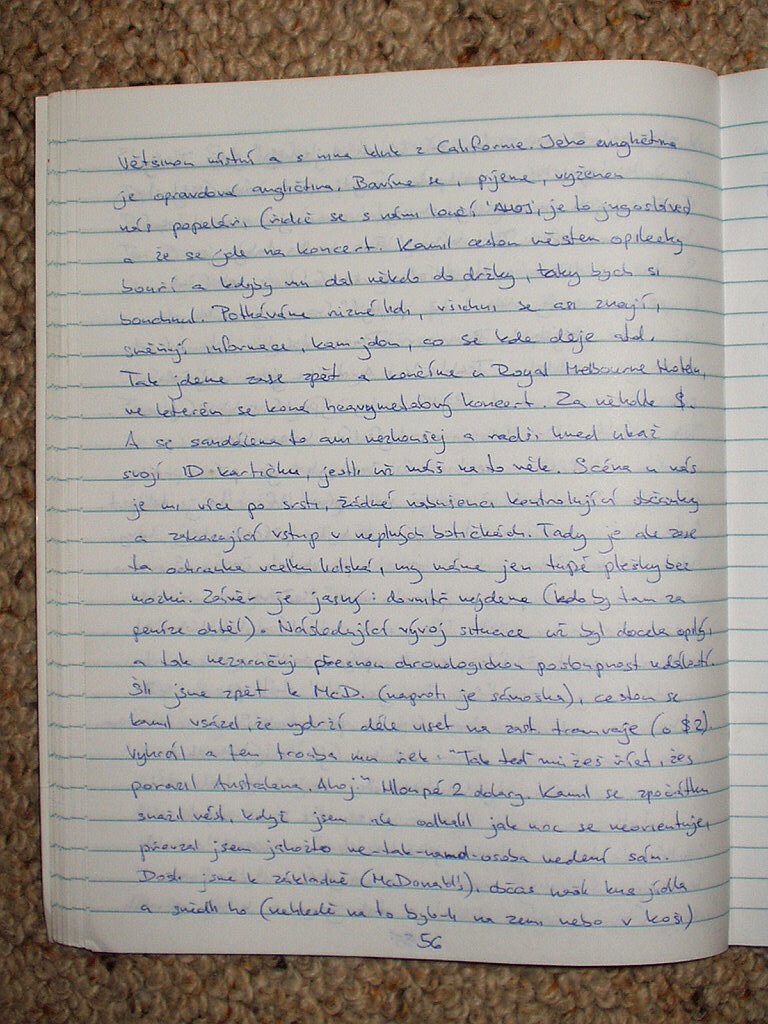 Většinou místní a s nima kluk z Californie. Jeho angličtina
je opravdová angličtina. Bavíme se, pijeme, vyženou
nás popeláři (řidič se s námi loučí "AHOJ", je to jugoslávec)
a že se jde na koncert. Kamil cestou městem opilecky
bouří a kdyby mu dal někdo do držky, taky bych si
bouchnul. Potkáváme různé lidi, všichni se asi znají,
směňují informace, kam jdou, co se kde děje atd.
Tak jdeme zase zpět a končíme u Royal Melbourne Hotelu,
ve kterém se koná heavymetalový koncert. Za několik $.
A se sandálema to ani nezkoušej a radši hned ukaž
svojí ID kartičku, jestli už máš na to věk. Scéna u nás
je mi více po srsti, žádné nabušenci kontrolující občanky
a zakazující vstup v neplných botičkách. Tady je ale zase
ta ochranka vcelku lidská, my máme jen tupé plešky bez
mozku. Závěr je jasný: dovnitř nejdeme (kdo by tam za
peníze chtěl). Následující vývoj situace už byl docela opilý,
a tak nezaručuji přesnou chronologickou posloupnost událostí.
Šli jsme zpět k McD. (naproti je sámoška), cestou se
kamil vsázel, že vydrží déle viset na zast. tramvaje (o $2).
Vyhrál a ten trouba mu řek: "Tak teď můžeš říct, žes
porazil Australana. Ahoj." Hloupé 2 dolary. Kamil se zpočátku
snažil vést, když jsem ale odhalil jak moc se neorientuje,
převzal jsem jakožto ne-tak-namol-osoba vedení sám.
Došli jsme k základně (McDonald's), občas našli kus jídla
a snědli ho (nehledě na to bylo-li na zemi nebo v koši)
56